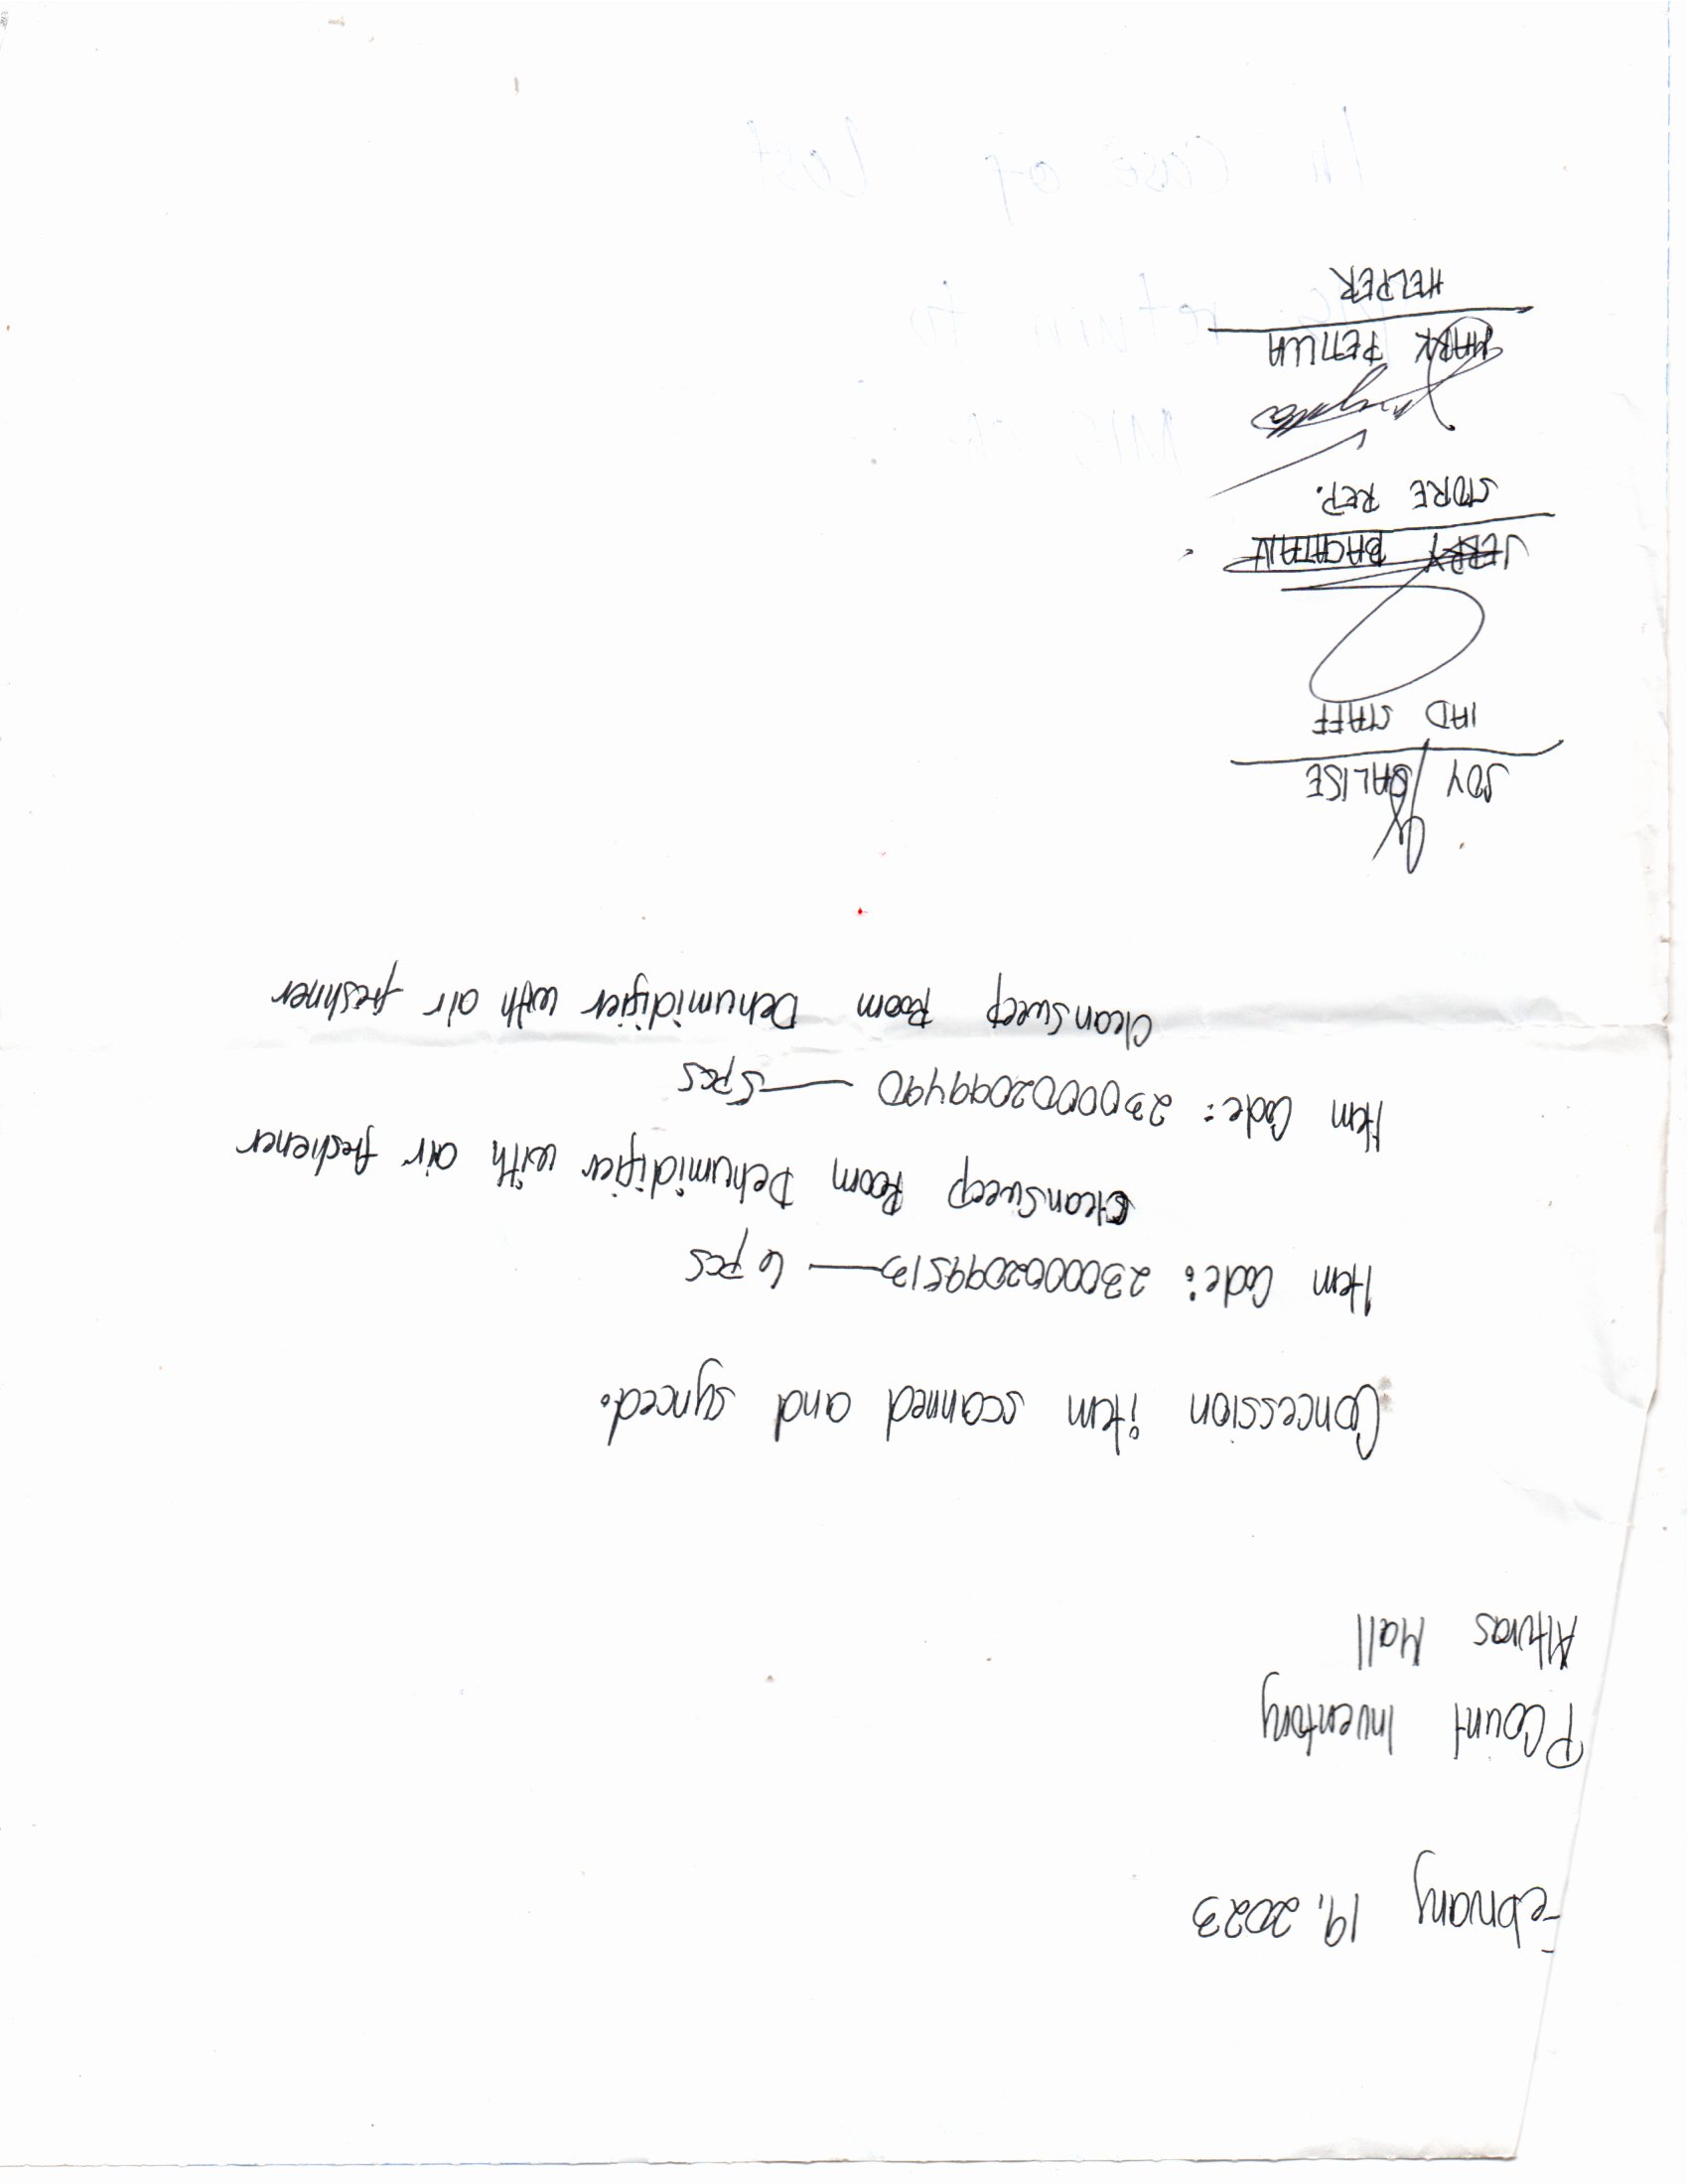 February 19, 2023
PCount Inventory
Alturas Mall
Concession item scanned and synced.
Item Code: 2300002099513 — 6 pcs
CleanSweep Room Dehumidifier with air freshener
Item Code: 2300002099490 — 5 pcs
CleanSweep Room Dehumidifier with air freshner
JOY BALISE
IAD STAFF
JERRY
STORE REP.
MARK PETILLA
HELPER
In case of lost
return to